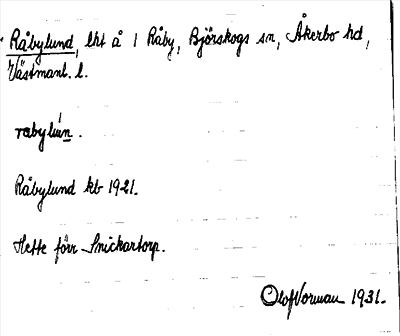 Råbylund, lht å 1 Råby, Björskogs sn, Åkerbo hd,
Västmanl. l.
rabylún.
Råbylund kb 1921.
Hette förr Snickartorp.
Olof Norman 1931.